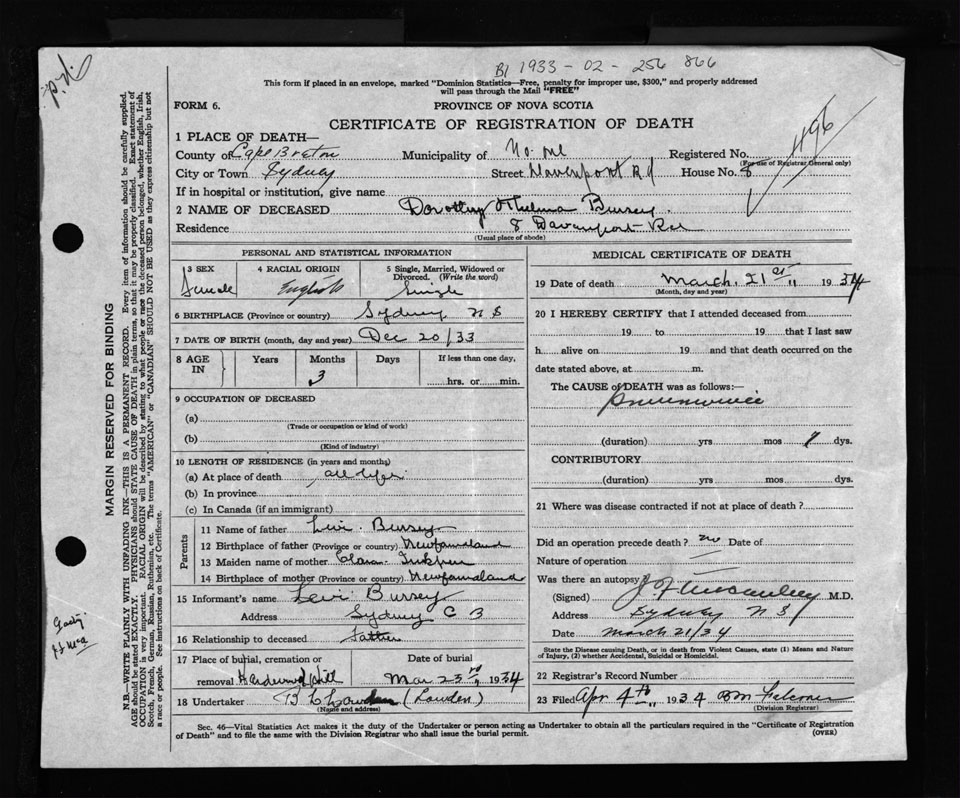 B1 1933 - 02 - 256 866
This form if placed in an envelope, marked "Dominion Statistics—Free, penalty for improper use, $300," and properly addressed
will pass through the Mail "FREE"
FORM 6.
PROVINCE OF NOVA SCOTIA
CERTIFICATE OF REGISTRATION OF DEATH
1 PLACE OF DEATH—
County of Cape Breton Municipality of Registered No.
(For use of Registrar General only)
City or Town Sydney Street Davenport Rd House No. 8
If in hospital or institution, give name
2 NAME OF DECEASED Dorothy Thelma Bursey
Residence 8 Davenport Rd
(Usual place of abode)
PERSONAL AND STATISTICAL INFORMATION
3 SEX
Female
4 RACIAL ORIGIN
English
5 Single, Married, Widowed or
Divorced. (Write the word)
Single
6 BIRTHPLACE (Province or country) Sydney N S
7 DATE OF BIRTH (month, day and year) Dec 20/33
8 AGE
IN
Years
Months
3
Days
If less than one day,
hrs. or min.
9 OCCUPATION OF DECEASED
(a)
(Trade or occupation or kind of work)
(b)
(Kind of industry)
10 LENGTH OF RESIDENCE (in years and months)
(a) At place of death all life
(b) In province
(c) In Canada (if an immigrant)
Parents
11 Name of father Levi Bursey
12 Birthplace of father (Province or country) Newfoundland
13 Maiden name of mother Clara
14 Birthplace of mother (Province or country) Newfoundland
15 Informant's name Levi Bursey
Address Sydney C B
16 Relationship to deceased father
17 Place of burial, cremation or
removal Hardwood Hill
Date of burial
Mar 23rd 1934
18 Undertaker (Lowden)
(Name and address)
MEDICAL CERTIFICATE OF DEATH
19 Date of death March 21st 1934
(Month, day and year)
20 I HEREBY CERTIFY that I attended deceased from
19 to 19 that I last saw
h alive on 19 and that death occurred on the
date stated above, at m.
The CAUSE of DEATH was as follows:—
(duration) yrs mos 7 dys.
CONTRIBUTORY
(duration) yrs mos dys.
21 Where was disease contracted if not at place of death?
Did an operation precede death? no Date of
Nature of operation
Was there an autopsy?
(Signed) M.D.
Address Sydney N S
Date March 21/34
State the Disease causing Death, or in death from Violent Causes, state (1) Means and Nature
of Injury, (2) whether Accidental, Suicidal or Homicidal.
22 Registrar's Record Number
23 Filed Apr 4th 1934
(Division Registrar)
Sec. 46—Vital Statistics Act makes it the duty of the Undertaker or person acting as Undertaker to obtain all the particulars required in the "Certificate of Registration
of Death" and to file the same with the Division Registrar who shall issue the burial permit.
(OVER)
MARGIN RESERVED FOR BINDING
N.B.—WRITE PLAINLY WITH UNFADING INK—THIS IS A PERMANENT RECORD. Every item of information should be carefully supplied.
AGE should be stated EXACTLY. PHYSICIANS should STATE CAUSE OF DEATH in plain terms, so that it may be properly classified. Exact statement of
OCCUPATION is very important. RACIAL ORIGIN will be described by stating to what people or race the deceased person belonged, whether English, Irish,
Scotch, French, German, Russian, Ruthenian, etc. The terms "AMERICAN" or "CANADIAN" SHOULD NOT BE USED as they express citizenship but not
a race or people. See instructions on back of Certificate.